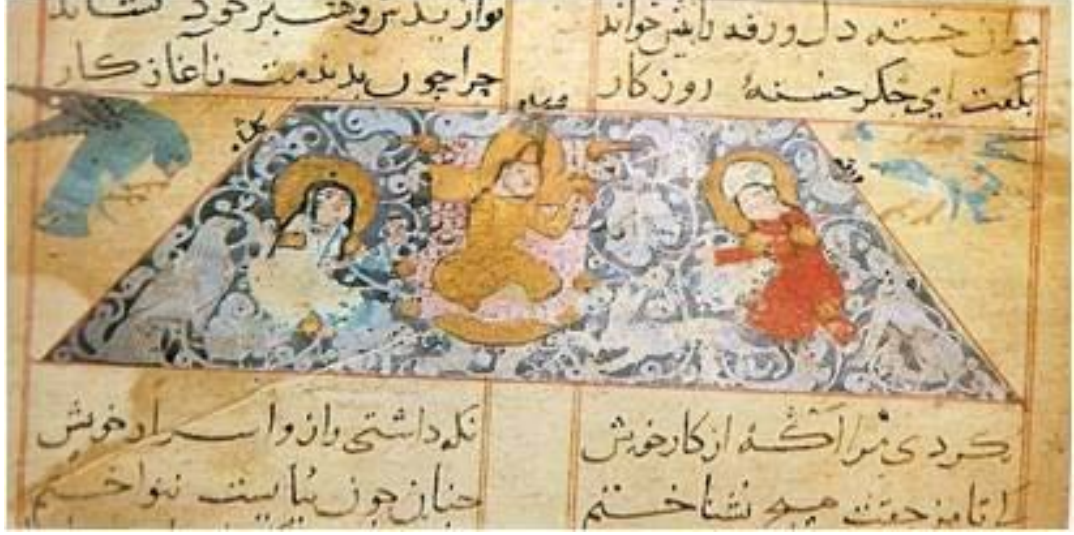 مران خسته دل ورقه را پیش خواند نوازیدش و بر خود نشاند
بگفت ای جگر خستهٔ روزکار چرا چون بدیدمت زآغاز کار
ورقه
گلشاه
نکردی مرا آگه از کار خویش نکه داشتی راز و اسرار خویش
که تا من حقت هیچ نشناختم چنان چون ببایست ننواختم